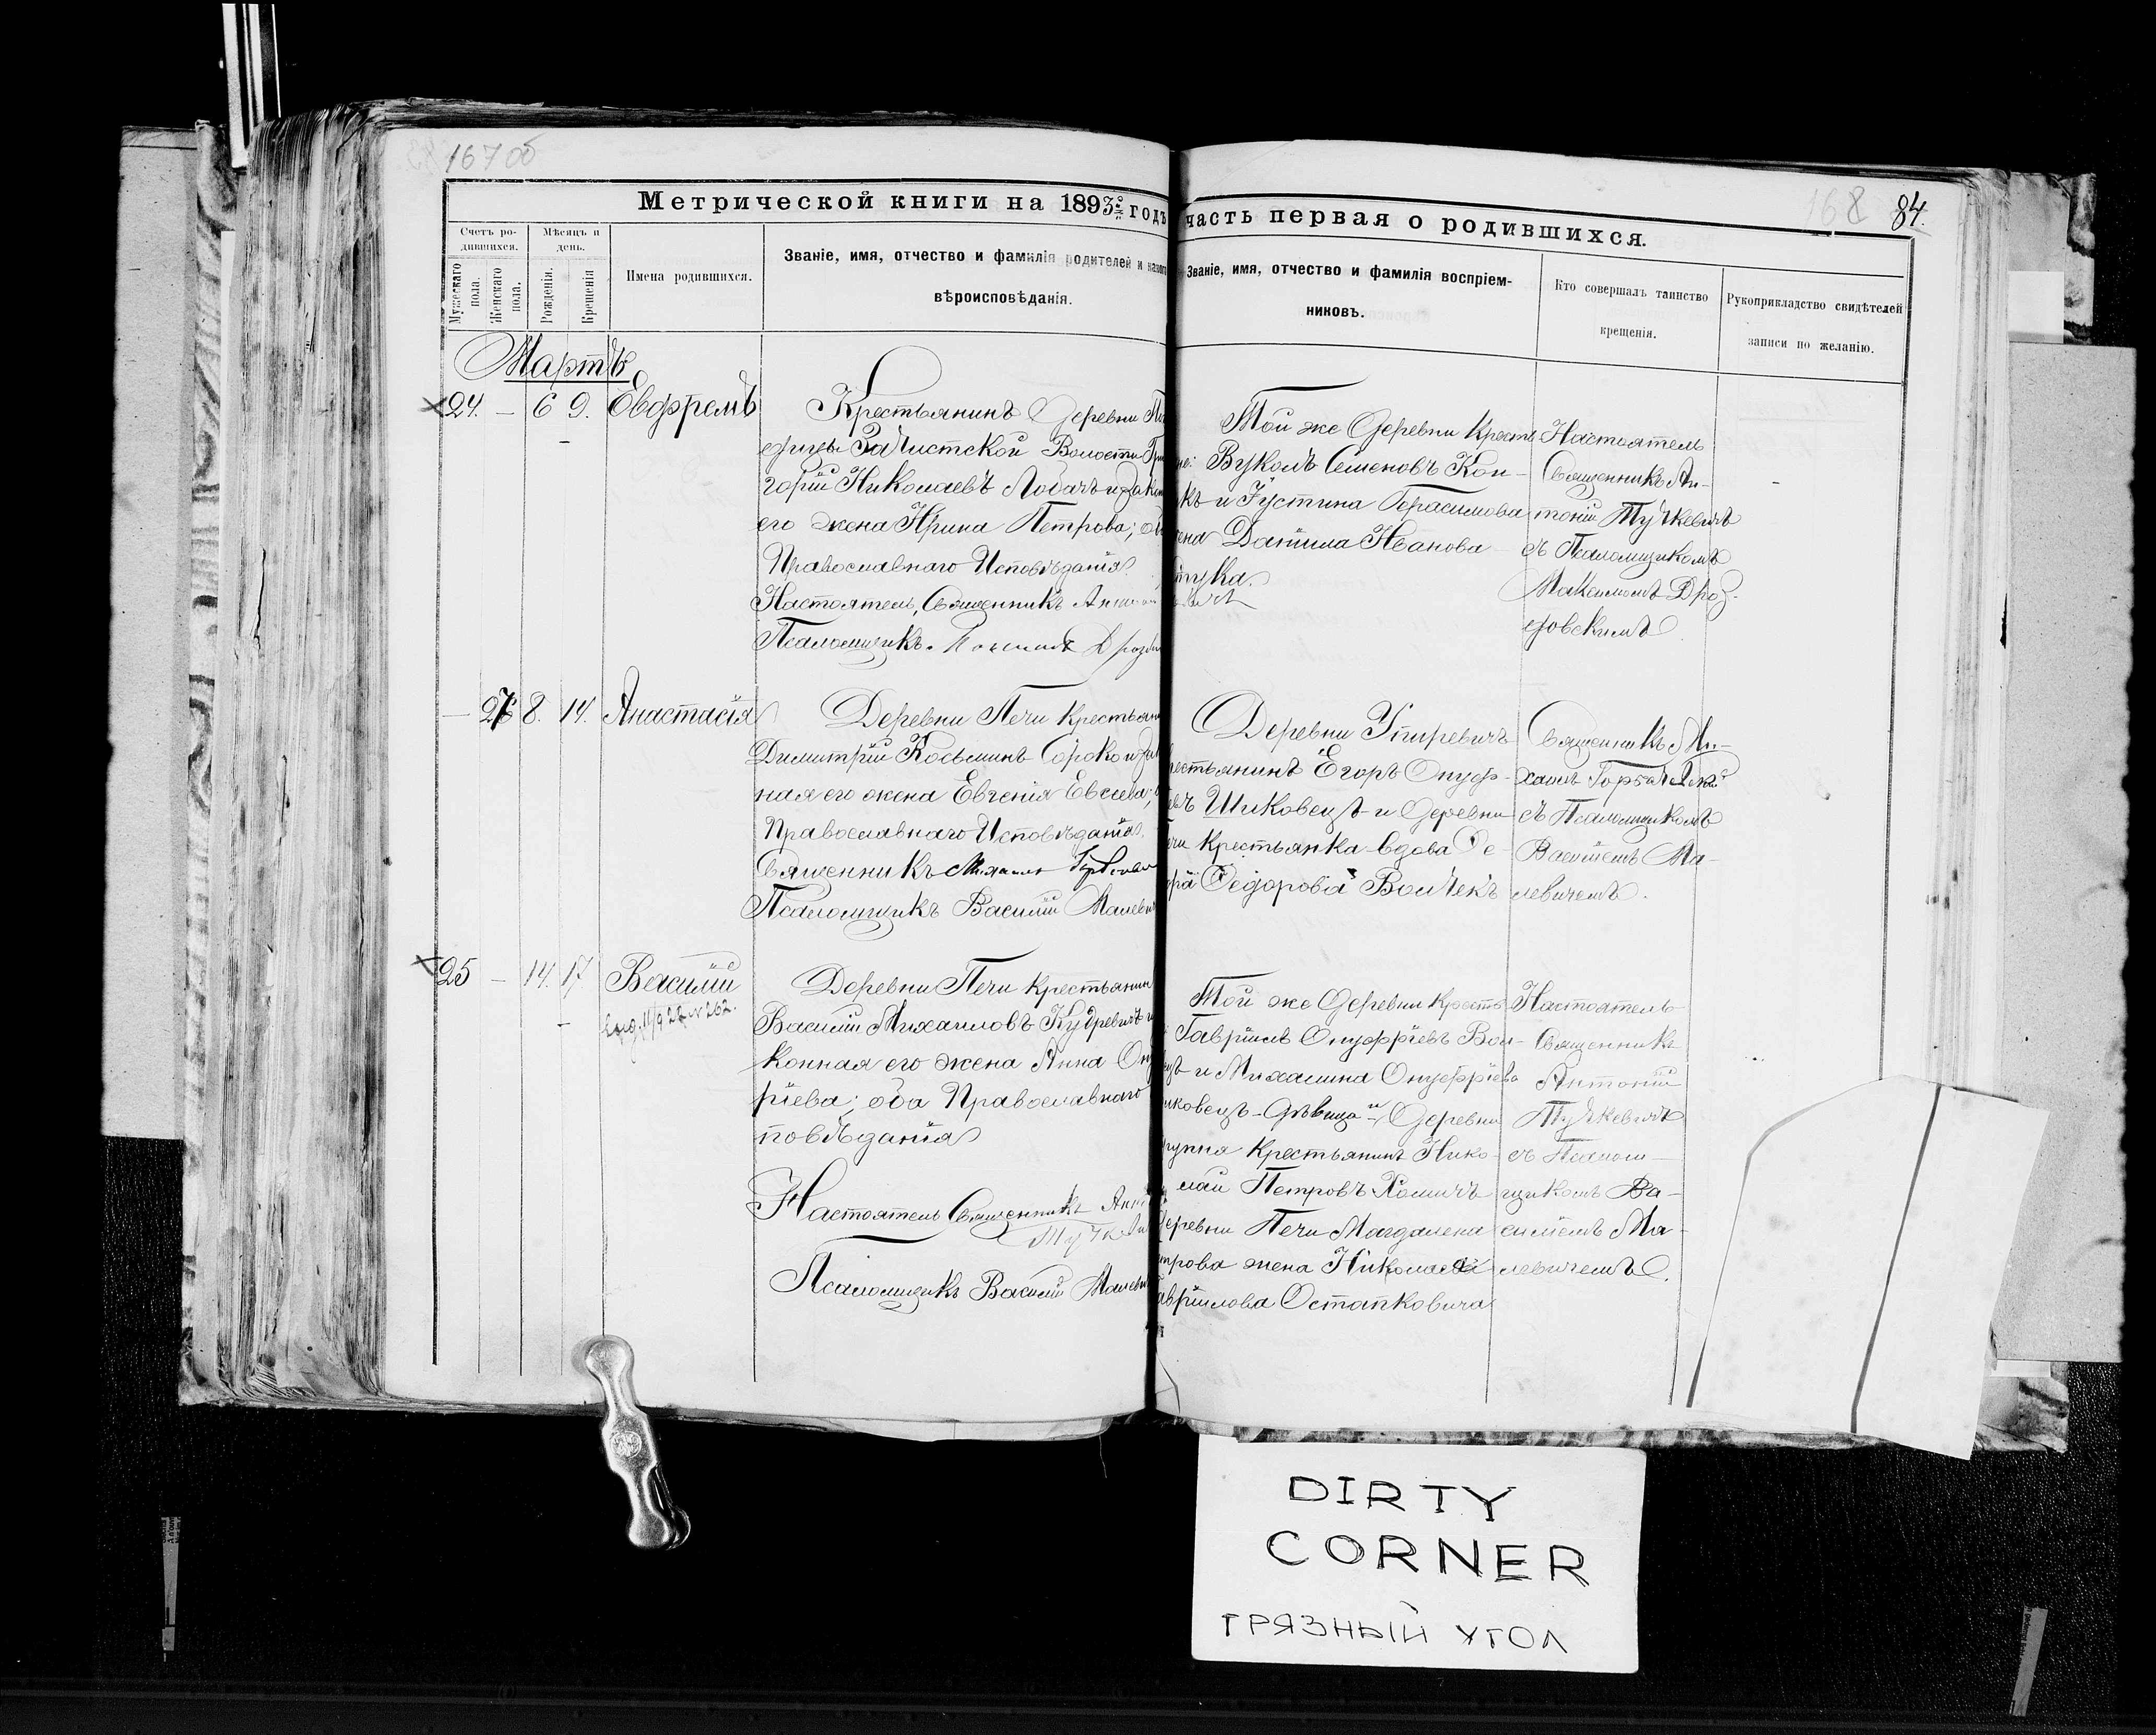 167 об
168 84.
Метрической книги на 1893й годъ часть первая о родившихся.
Счетъ родившихся.
Мужескаго пола.
Женскаго пола.
Мѣсяцъ и день.
Рожденія.
Крещенія
Имена родившихся.
Званіе, имя, отчество и фамилія родителей и
вѣроисповѣданія.
Званіе, имя, отчество и фамилія воспріем-
никовъ.
Кто совершалъ таинство
крещенія.
Рукоприкладство свидѣтелей
записи по желанію.
Мартъ
24. — 6 9. Евфремъ
Крестьянинъ деревни
Зачистской Волости
горій Николаевъ Лобачъ и
его жена Ирина Петрова;
Православнаго Исповѣданія.
Настоятель, Священникъ
Псаломщикъ.
Той же деревни Кресть
Вуколъ Семеновъ Кон-
и Іустина Герасимова
Даніила Иванова
Настоятель
Священникъ Ан-
тоній Тучкевичъ
съ Псаломщикомъ
Максимомъ Дроз-
довскимъ
— 8. 14. Анастасія
Деревни Печи Крестьян
Димитрій Косьминъ Сороко и
ная его жена Евгенія Евсеева;
Православнаго Исповѣданія.
Священникъ Михаилъ
Псаломщикъ Василій Малеви
Деревни Упиревичъ
естьянинъ Егоръ Онуф-
Шиковецъ и деревни
Крестьянка-вдова Ѳе-
Ѳедорова Волчекъ
Священникъ Ми-
хаилъ Горбачевскій
съ Псаломщикомъ
Василіемъ Ма-
левичемъ.
25 — 14. 17 Василій
Деревни Печи Крестьянин
Василій Михаиловъ Кудревичъ и
конная его жена Анна Ону
ріева; оба Православнаго
повѣданія
Настоятель Священникъ
Псаломщикъ Василій Малеви
Той же деревни Кресть
Гавріилъ Онуфріевъ Вол-
и Михалина Онуфріева
иковецъ-дѣвица и деревни
Крестьянинъ Нико-
лай Петровъ Хомичъ
деревни Печи Магдалена
трова жена Николая
авріилова Остапковича
Настоятель
Священникъ
Антоній
Тучкевичъ
съ Псалом-
щикомъ Ва-
силіемъ Ма-
левичемъ.
DIRTY
CORNER
ГРЯЗНЫЙ УГОЛ